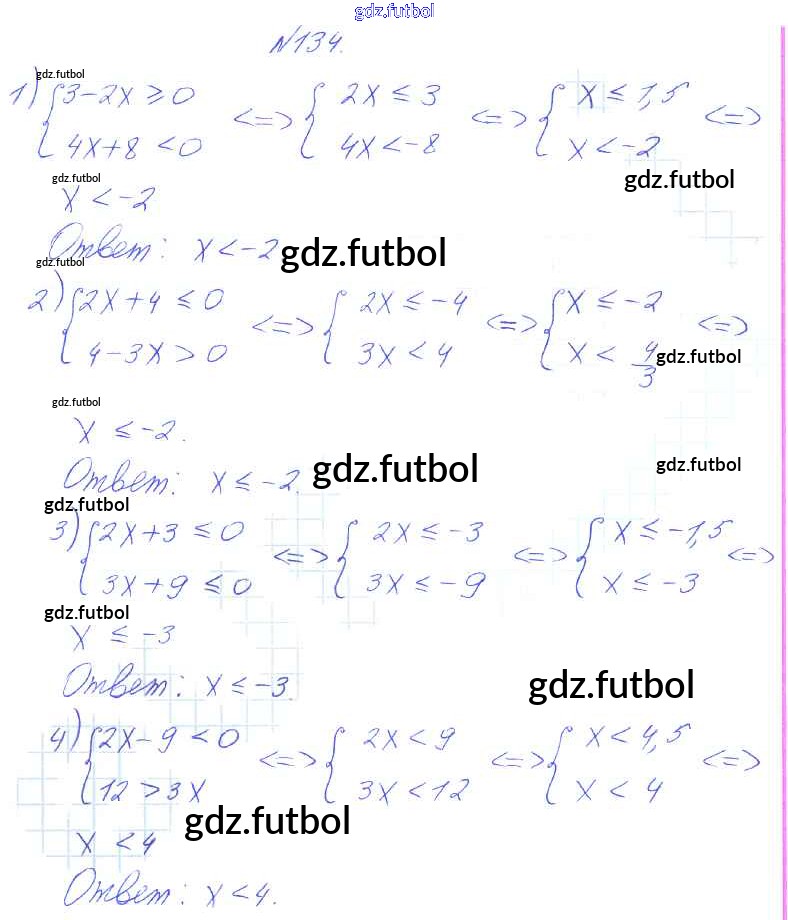 gdz.futbol
N134.
gdz.futbol
1) {3-2x ≥ 0 <=> { 2x ≤ 3 <=> { x ≤ 1,5 <=>
{4x+8 < 0 { 4x < -8 { x < -2
gdz.futbol gdz.futbol
x < -2
Ответ: x < -2 gdz.futbol
gdz.futbol
2) {2x+4 ≤ 0 <=> { 2x ≤ -4 <=> { x ≤ -2 <=>
{ 4-3x > 0 { 3x < 4 { x < 4/3 gdz.futbol
gdz.futbol
x ≤ -2.
Ответ: x ≤ -2. gdz.futbol gdz.futbol
gdz.futbol
3) {2x+3 ≤ 0 <=> { 2x ≤ -3 <=> { x ≤ -1,5 <=>
{ 3x+9 ≤ 0 { 3x ≤ -9 { x ≤ -3
gdz.futbol
x ≤ -3
Ответ: x ≤ -3. gdz.futbol
4) {2x-9 < 0 <=> { 2x < 9 <=> { x < 4,5 <=>
{12 > 3x { 3x < 12 { x < 4
gdz.futbol
x < 4
Ответ: x < 4.